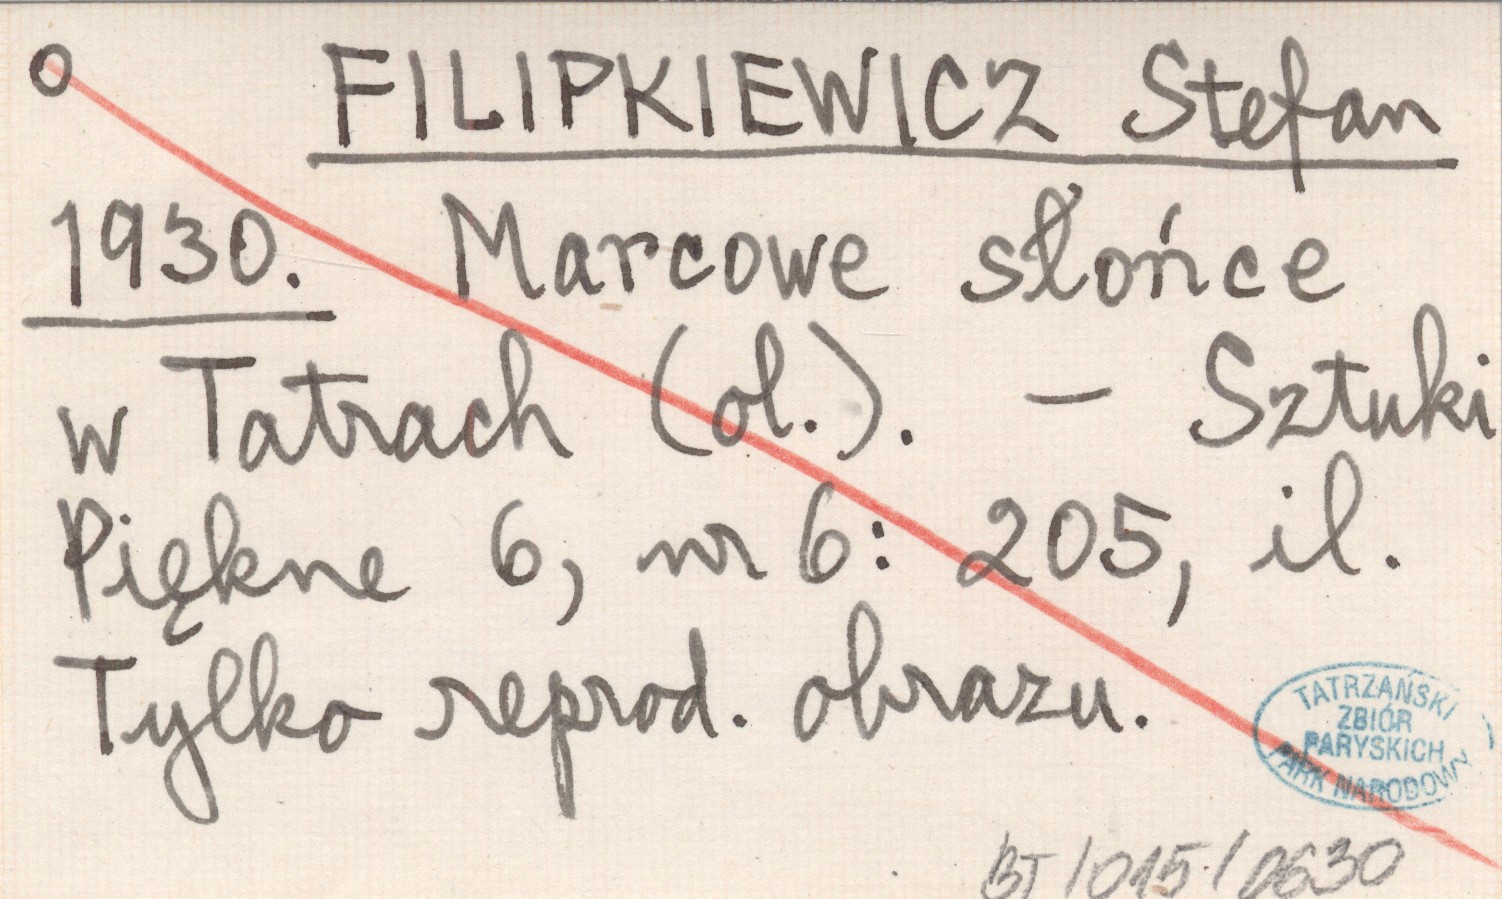 O FILIPKIEWICZ Stefan
1930. Marcowe słońce
w Tatrach (ol.). – Sztuki
Piękne 6, nr 6: 205, il.
Tylko reprod. obrazu.
TATRZAŃSKI
ZBIÓR
PARYSKICH
PARK NARODOWY
BT/015/0630